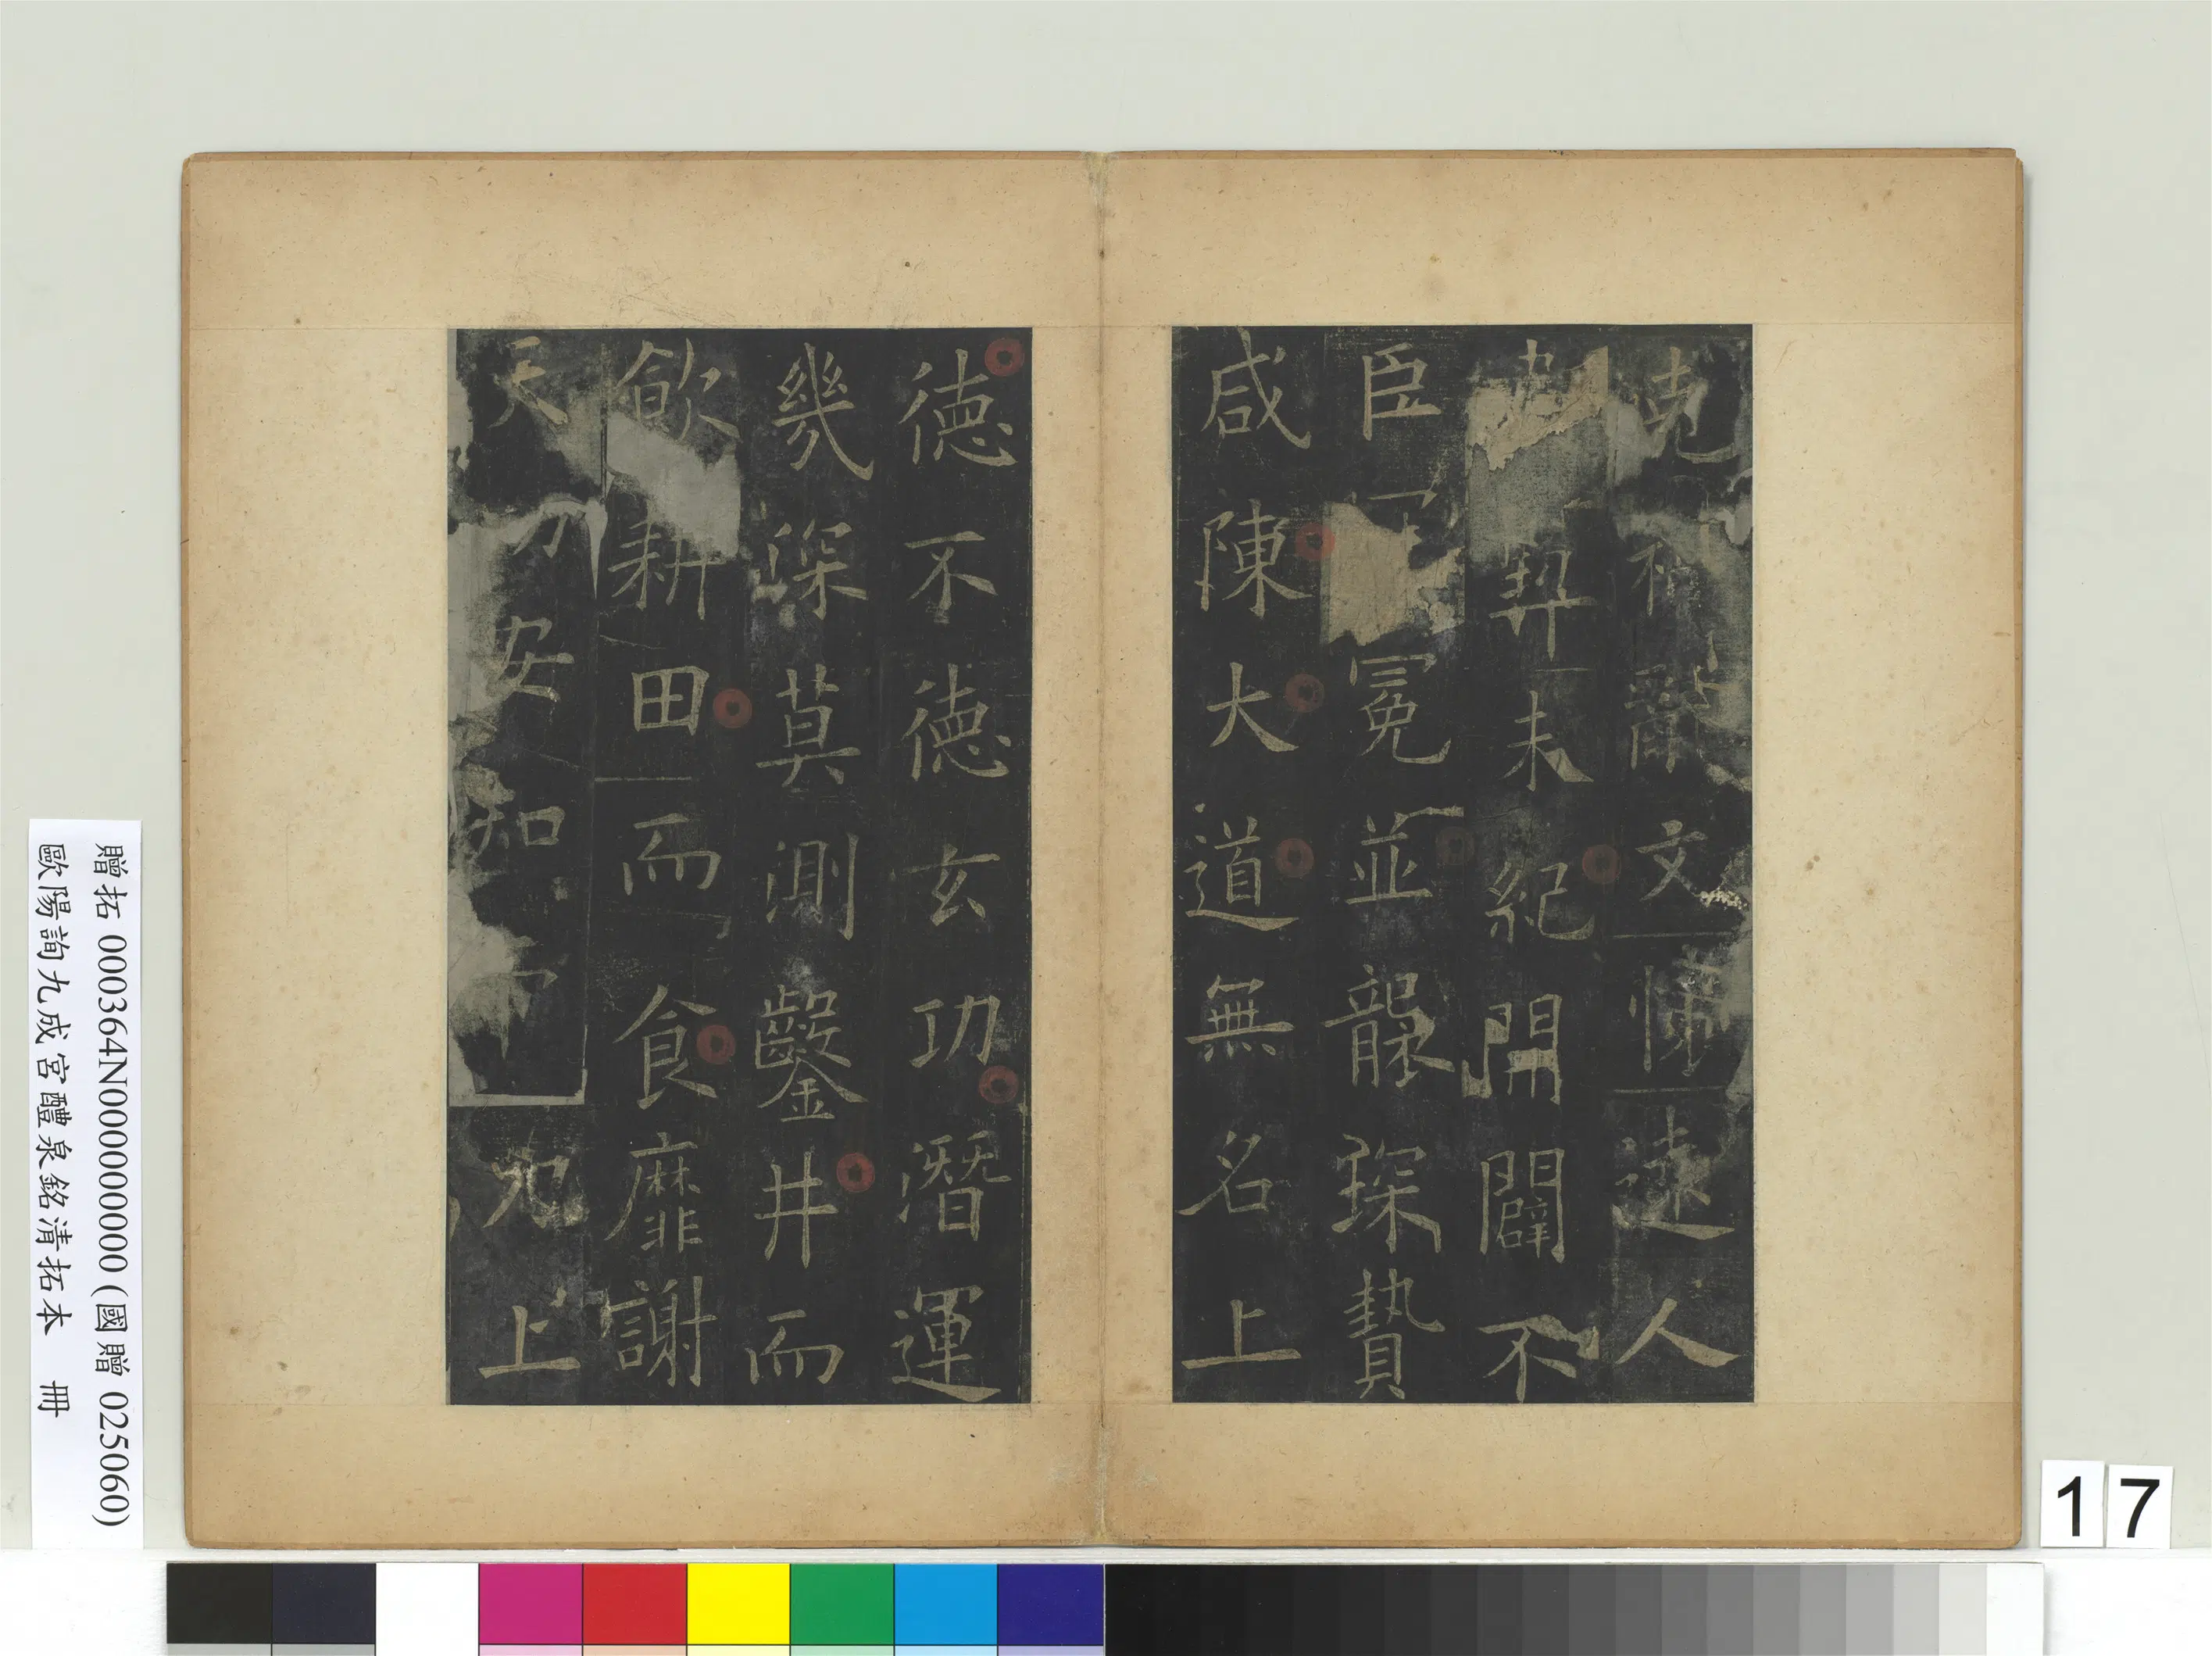 堯
文
遠人
契未紀開闢不
臣冕並襲琛贄
咸陳大道無名上
德不德玄功潛運
幾深莫測鑿井而
飲耕田而食靡謝
天安知上
贈拓 000364N000000000 (國贈 025060)
歐陽詢九成宮醴泉銘清拓本 冊
17